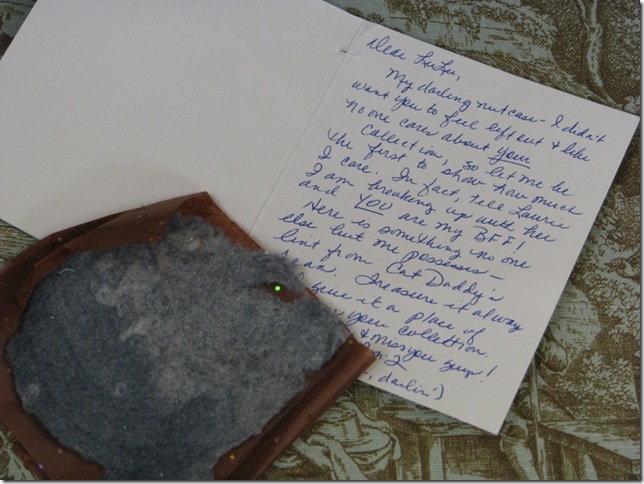 Dear LuLu,
My darling nutcase - I didn't
want you to feel left out & like
no one cares about your
Collection, so let me be
the first to show how much
I care. In fact, tell Laurie
I am breaking up with her
and YOU are my BFF!
Here is something no one
else but me possesses -
lint from Cat Daddy's
Treasure it alway
give it a place of
your collection.
& miss you guys!
, darlin')